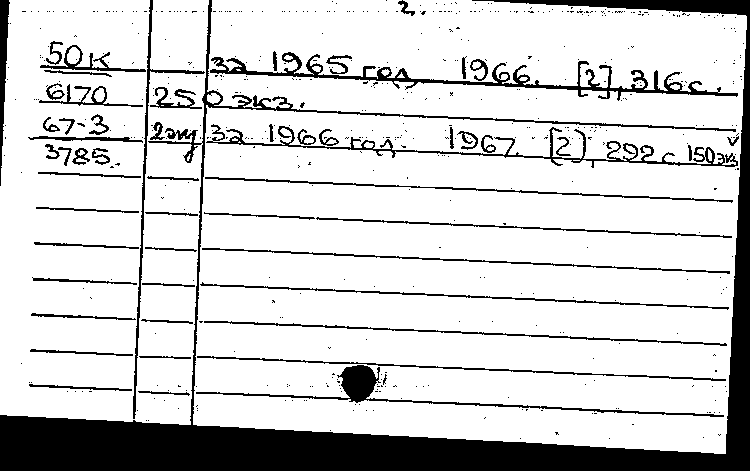 2.
50к за 1965 год 1966. [2], 316 с.
6170 250 экз.
67-3 2 экз за 1966 год. 1967. [2], 292 с 150 экз
3785.